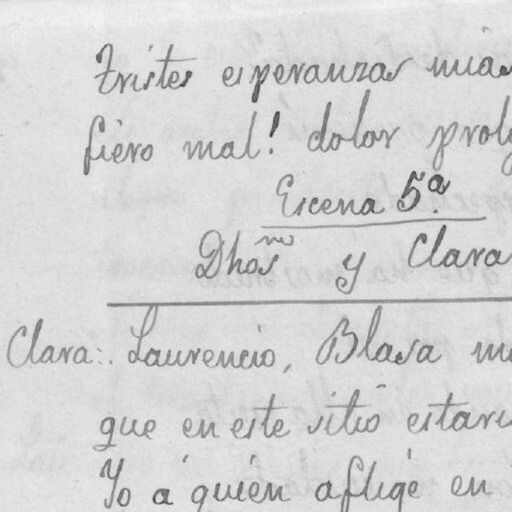 Tristes esperanzas mias
fiero mal! dolor prol
Escena 5ª.
Dhos y Clara
Clara:. Laurencio, Blasa m
que en este sitio estari
Yo á quién aflige en